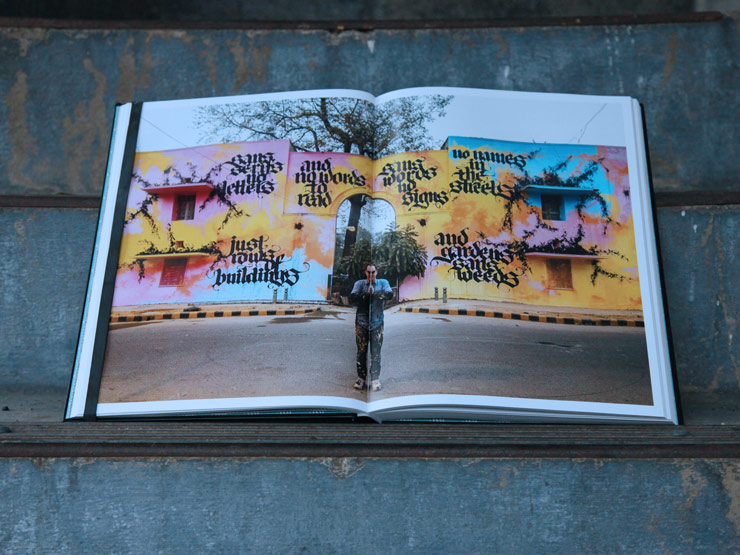 sans
serifs
no
letters
and
no words
to
read
sans
words
no
signs
no names
in
the
streets
just
rouge
buildings
and
gardens
sans
weeds